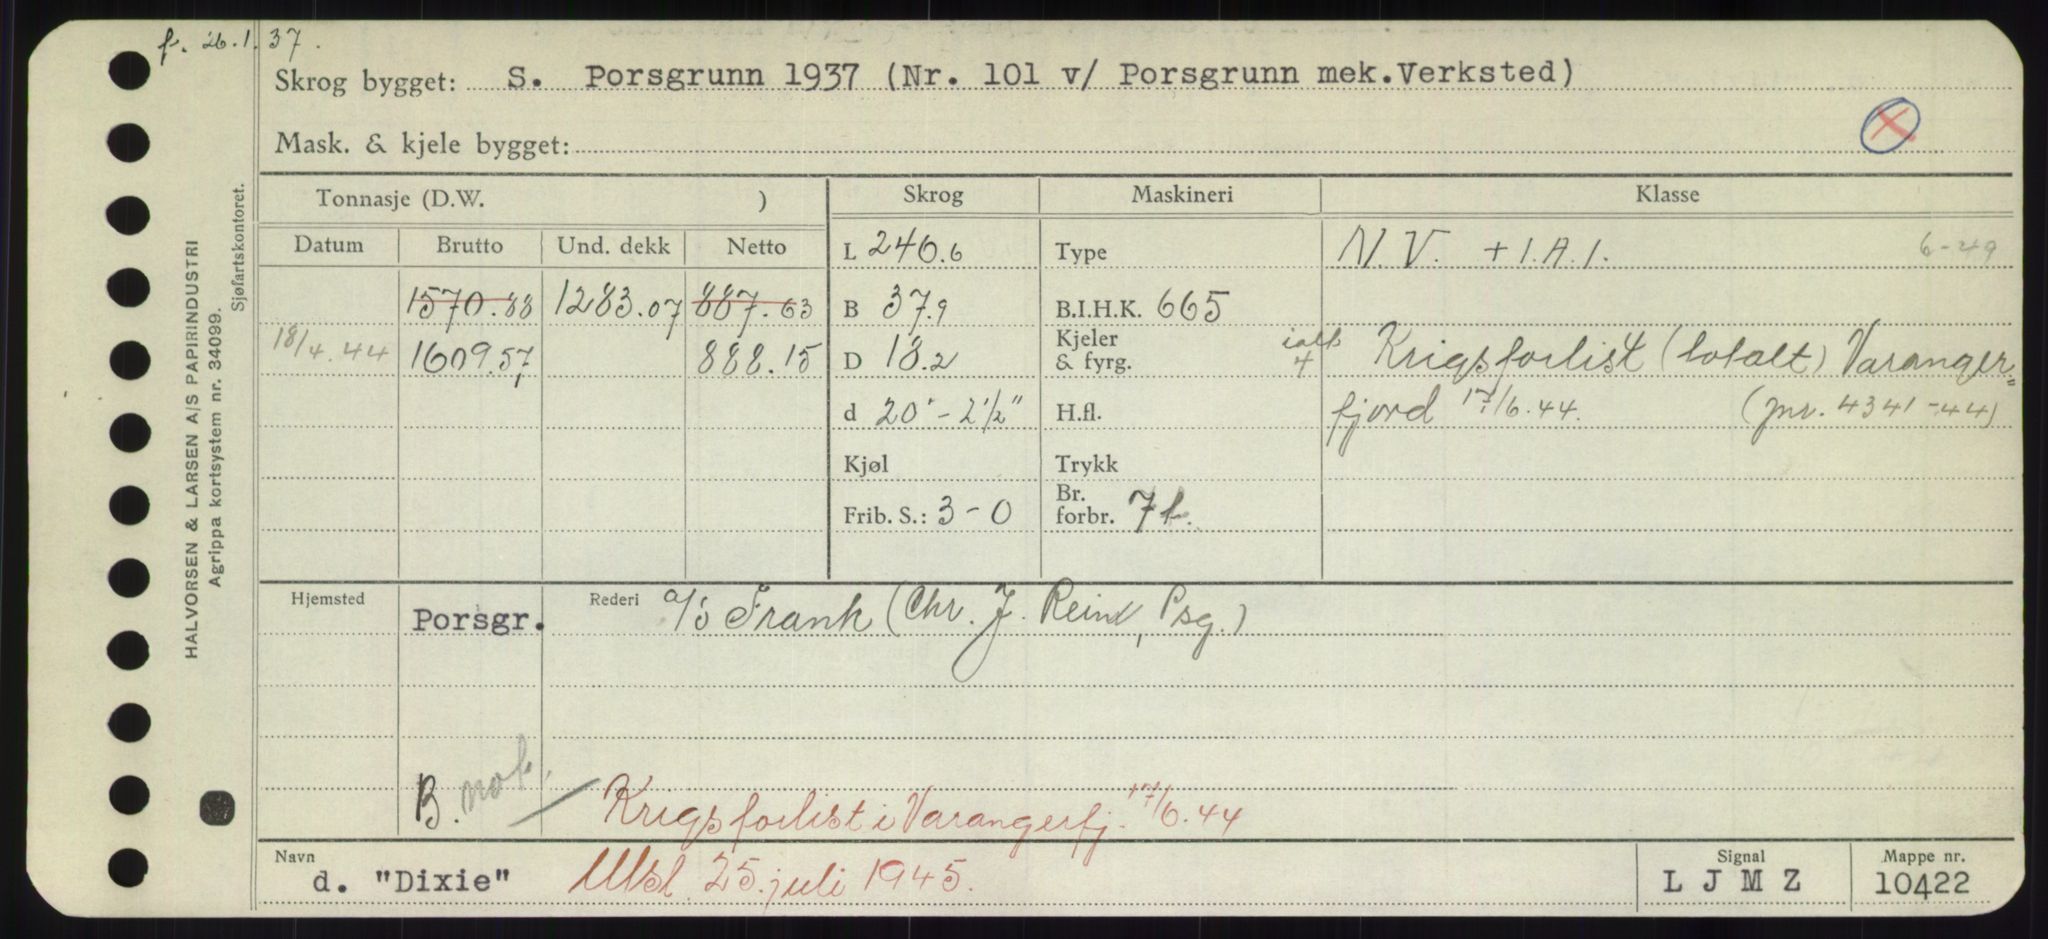 f. 26.1.37.
Skrog bygget: S. Porsgrunn 1937 (Nr. 101 v/ Porsgrunn mek.Verksted)
Mask. & kjele bygget:
X
HALVORSEN & LARSEN A/S PAPIRINDUSTRI
Agrippa kortsystem nr. 34099.
Sjøfartskontoret.
Tonnasje (D.W. ) Skrog Maskineri Klasse
Datum Brutto Und. dekk Netto L 240.6 Type N.V. + 1.A.1. 6-49
1570.88 1283.07 887.63 B 37.9 B.I.H.K. 665
18/4.44 1609.57 888.15 D 18.2 Kjeler & fyrg. ialt 4 Krigsforlist (totalt) Varanger=
d 20'-2½" H.fl. fjord 17/6.44. (jnr. 4341-44)
Kjøl Trykk
Frib. S.: 3-0 Br. forbr. 7t.
Hjemsted Porsgr. Rederi A/S Frank (Chr. J. Reim, Psg.)
B. not. Krigsforlist i Varangerfj. 17/6.44
Navn d. "Dixie" Utsl. 25. juli 1945. Signal L J M Z Mappe nr. 10422